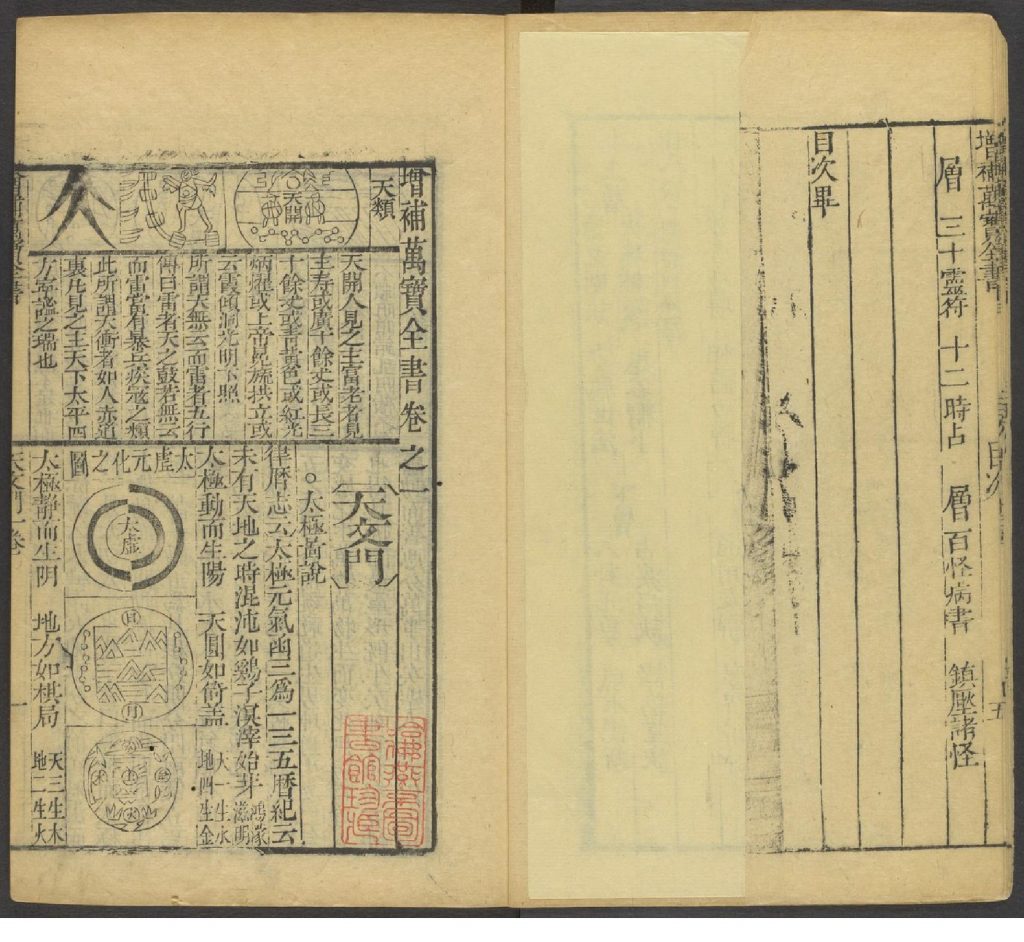 增補萬寶全書
目次
層 三十靈符 十二時占 層 百怪病書 鎮壓諸怪
目次畢
增補萬寶全書卷之一
天文門
天類
天開
天開人見之主富老者見
主寿或廣十餘丈或長三
十餘丈或青黄色或紅光
炳耀或上帝冕旒拱立或
云霞澒洞光明下照
所謂天無云而雷者五行
傳曰雷者天之鼓若無云
而雷當有暴兵疾寇之類
此所謂天衝者如人赤道
裏凡見之主天下太平四
方寧謐之瑞也
○太極啚說
律暦志云太極元氣函三爲一三五暦紀云
未有天地之時混沌如鷄子溟涬始芽鴻濛滋萌
太極動而生陽 天圓如倚盖 天一生水地四生金
太虛元化之圖
太虛
日
月
太極静而生阴 地方如棋局 天三生木地二生火
天文門一卷
一
哈佛燕京圖書館珍藏